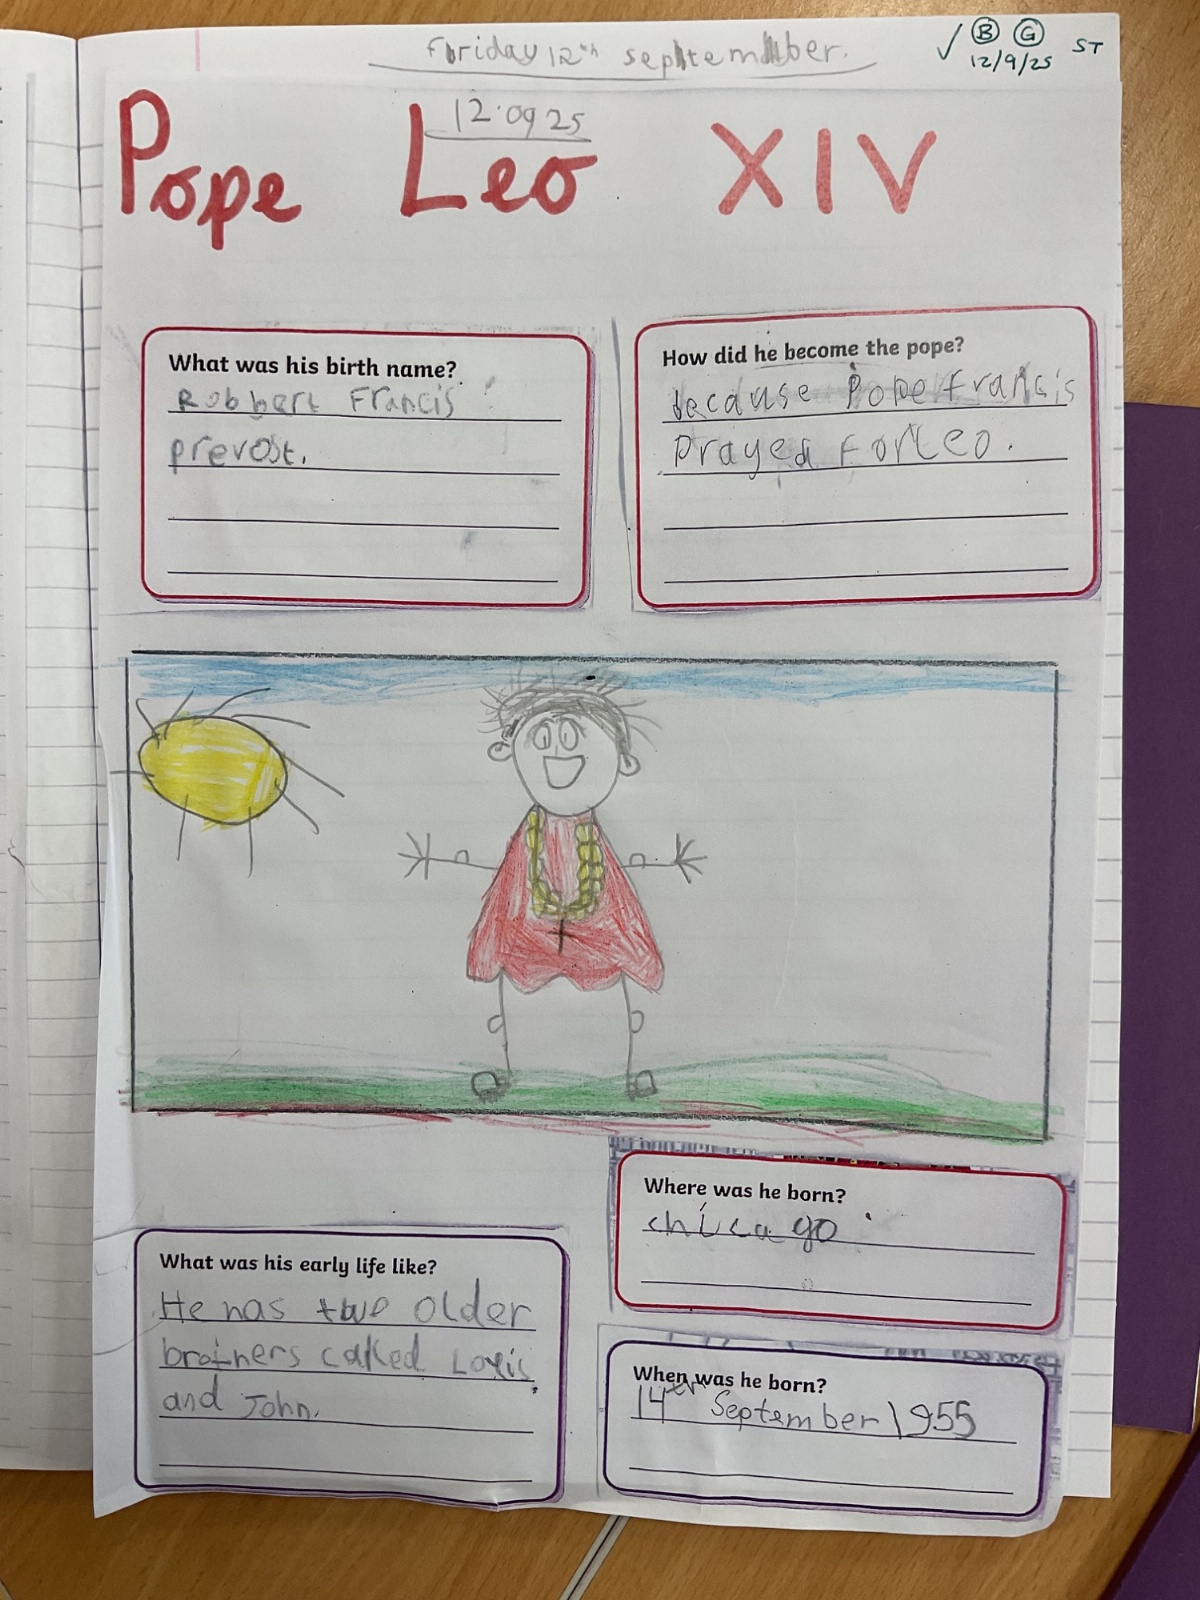 Friday 12th september.
✓ B G ST
12/9/25
12.09 25
Pope Leo XIV
What was his birth name?
Robbert Francis
prevost.
How did he become the pope?
because Pope francis
Prayed for Leo.
Where was he born?
chicago
What was his early life like?
He has two older
brothers called Louis
and John.
When was he born?
14th September 1955